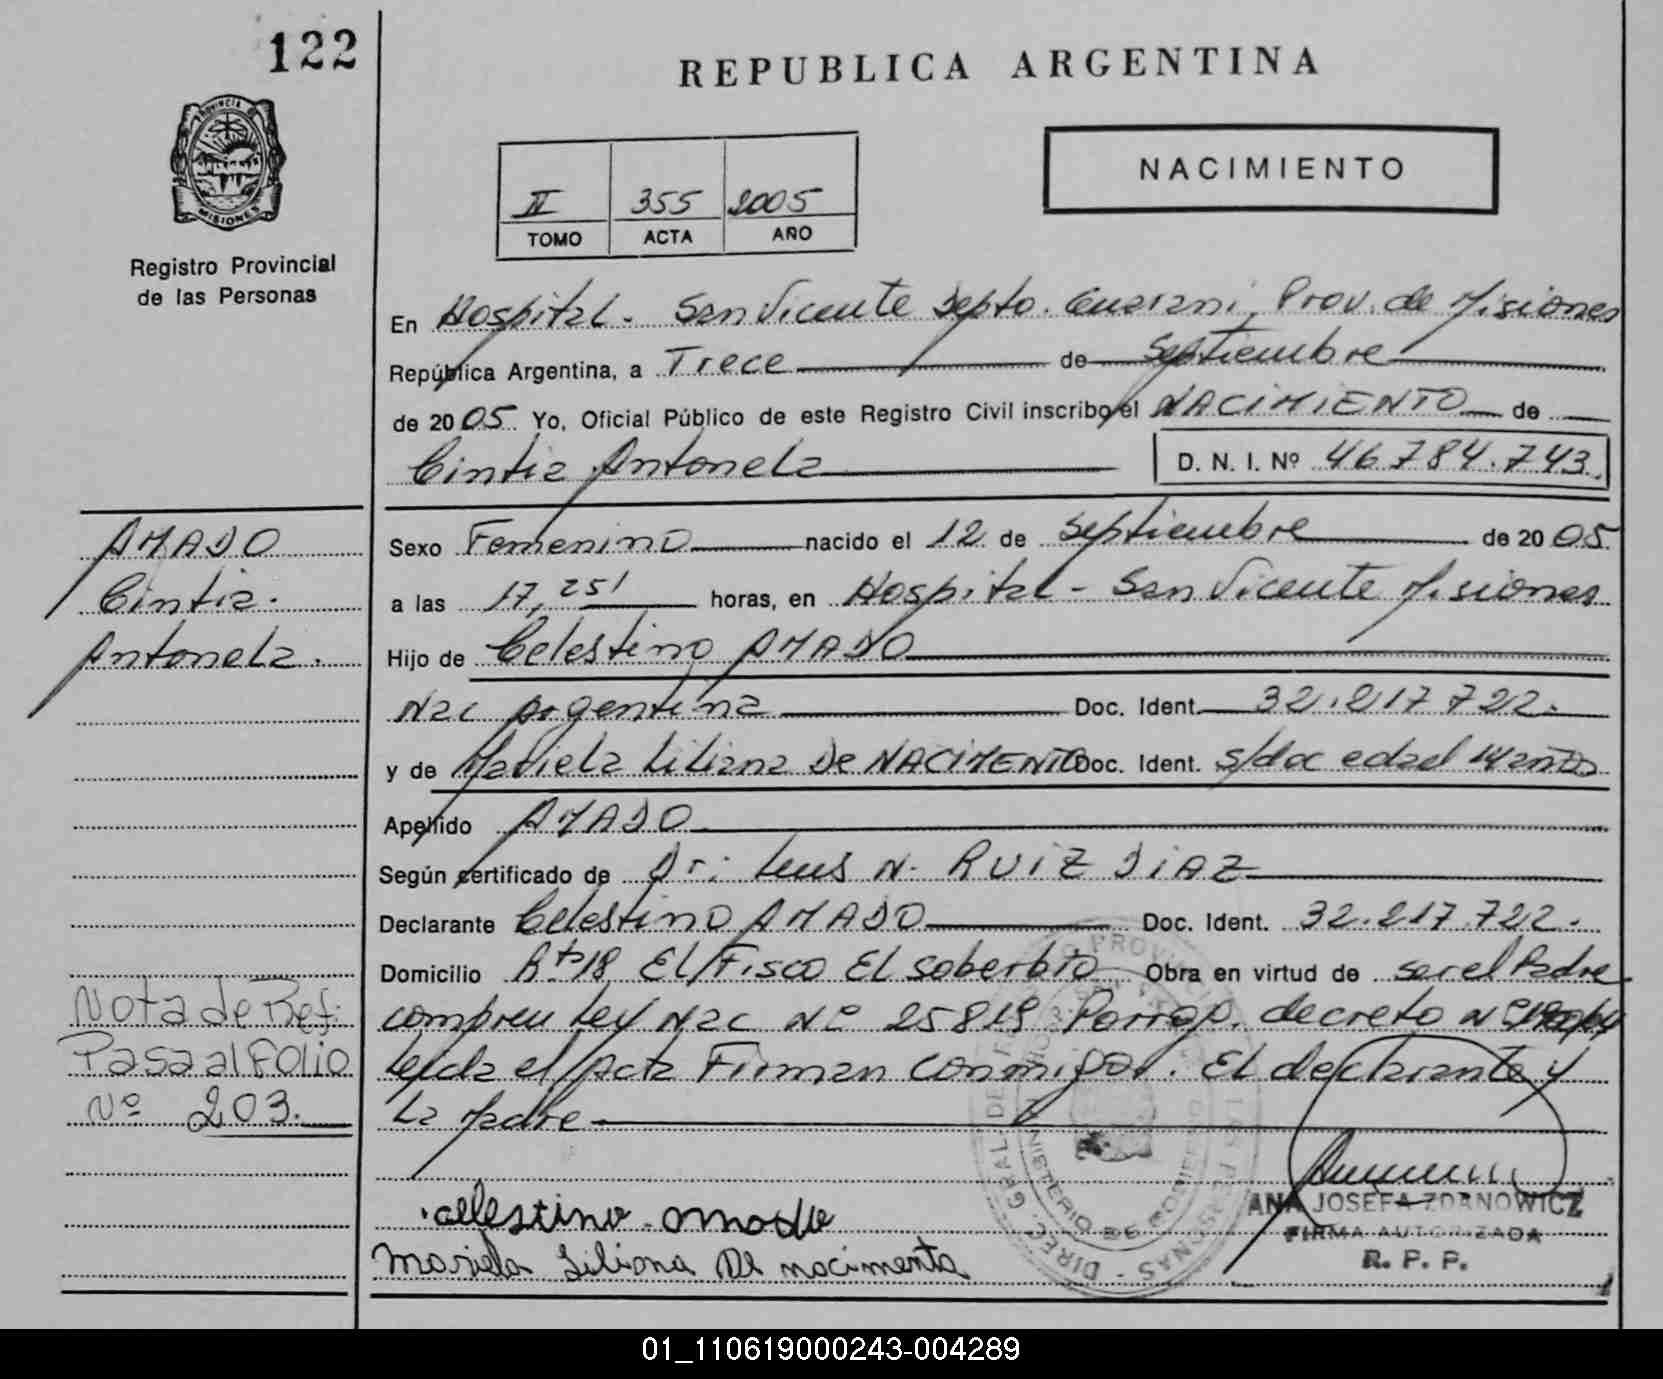 122
REPUBLICA ARGENTINA
PROVINCIA DE
MISIONES
Registro Provincial
de las Personas
II 355 2005
TOMO ACTA AÑO
NACIMIENTO
En Hospital - San Vicente Depto. Guarani, Prov. de Misiones
República Argentina, a Trece de Septiembre
de 2005 Yo, Oficial Público de este Registro Civil inscribo el NACIMIENTO de
Cintia Antonela D. N. I. Nº 46.784.743
AMADO
Cintia
Antonela
Sexo Femenino nacido el 12 de Septiembre de 2005
a las 17,25' horas, en Hospital - San Vicente Misiones
Hijo de Celestino AMADO
Nac Argentina Doc. Ident. 32.217.722
y de Mariela Liliana De NACIMENTO Doc. Ident. s/doc edad 14 años
Apellido AMADO
Según certificado de Dr: Luis N. RUIZ DIAZ
Declarante Celestino AMADO Doc. Ident. 32.217.722.
Domicilio Rta 18 El Fisco El Soberbio Obra en virtud de ser el Padre
Ley Nac Nº 25819 decreto Nº
Leida el Acta Firman conmigo. El declarante y
La Madre
Nota de Ref:
Pasa al Folio
Nº 203.
celestino amado
Mariela Liliana De nacimento
ANA JOSEFA ZDANOWICZ
FIRMA AUTORIZADA
R. P. P.
01_110619000243-004289